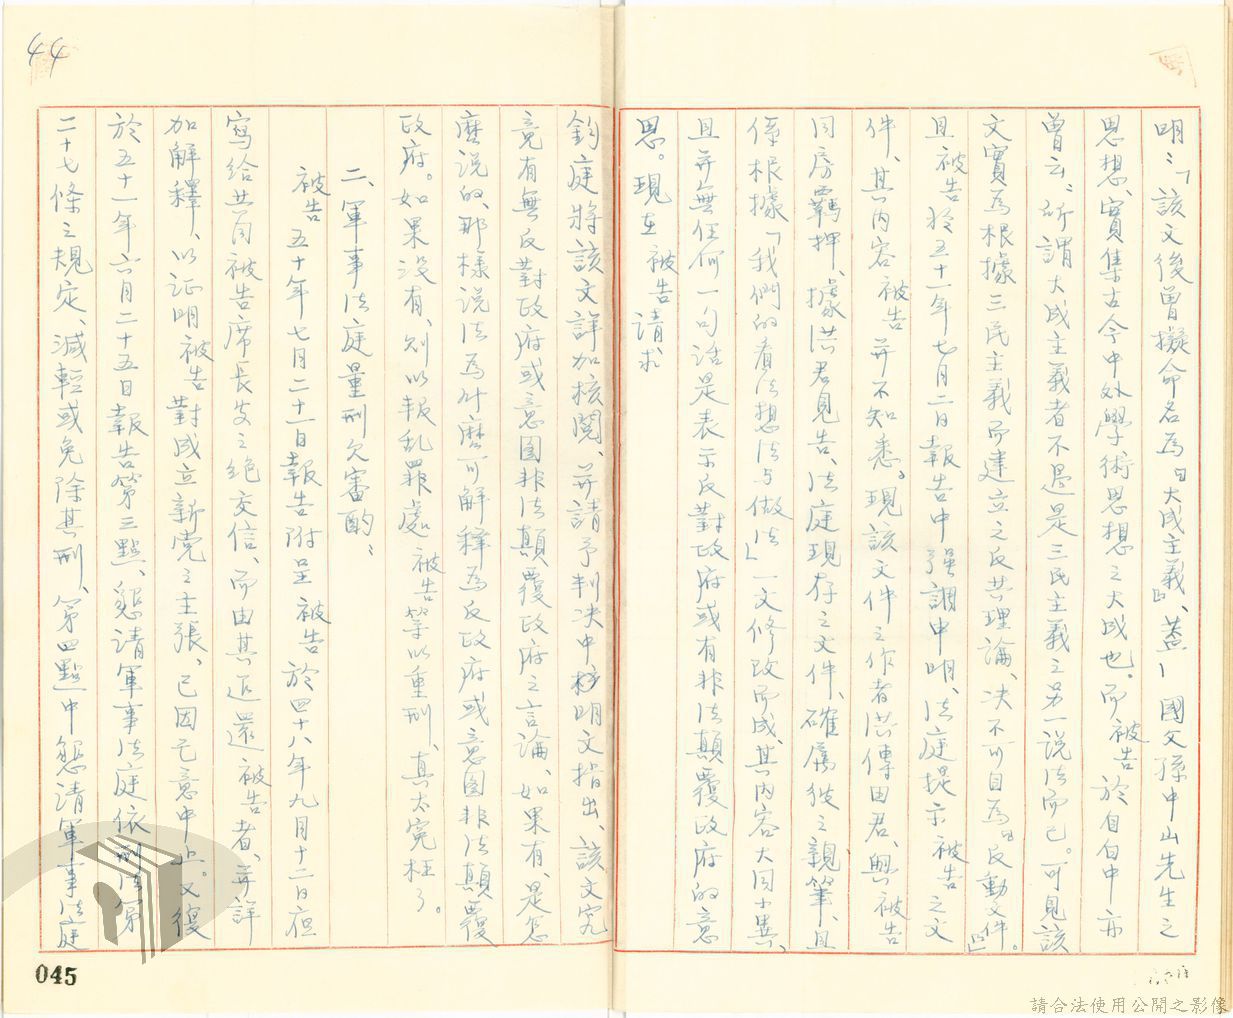 44
明：「該文後曾擬命名為『大成主義』、蓋— 國父孫中山先生之
思想、實集古今中外學術思想之大成也。而被告於自白中亦
曾云：所謂大成主義者不過是三民主義之另一說法而已。可見該
文實為根據三民主義而建立之反共理論、決不可目為『反動文件』。
且被告於五十一年七月二日報告中強調申明、法庭提示被告之文
件、其內容被告並不知悉。現該文件之作者洪傳田君、與被告
同房羈押、據洪君見告、法庭現存之文件、確屬彼之親筆、且
係根據「我們的看法想法与做法」一文修改而成其內容大同小異、
且並無任何一句話是表示反對政府或有非法顛覆政府的意
思。現在被告請求
鈞庭將該文詳加核閱、並請予判決中 明文指出、該文究
竟有無反對政府或意圖非法顛覆政府之言論、如果有、是怎
麼說的、那樣說法為什麼可解釋為反政府或意图非法顛覆
政府。如果沒有、则以叛乱罪處被告等以重刑、真太寃枉了。
二、軍事法庭量刑欠審酌：
被告五十年七月二十一日報告附呈被告於四十八年九月十二日夜
寫給共同被告席長安之絕交信、而由其退還被告者、並詳
加解釋、以证明被告對成立新党之主張、已因己意中止。又復
於五十一年六月二十五日報告第三點、懇請軍事法庭依刑法第
二十七條之規定、減輕或免除其刑、第四點中懇請軍事法庭
045
請合法使用公開之影像